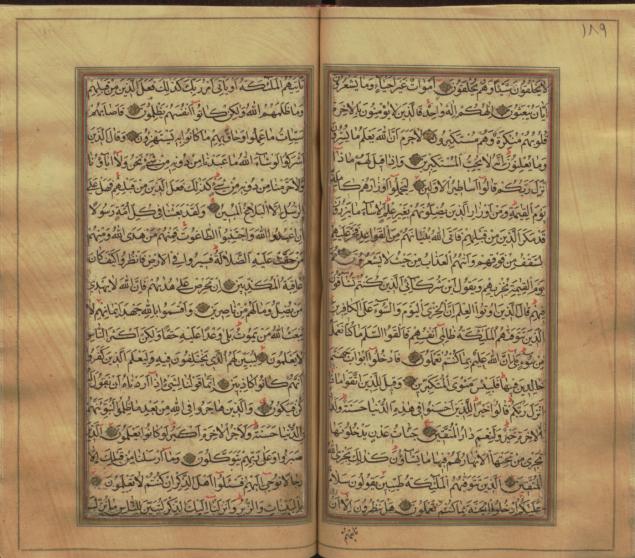 ١٨٩
لا يخلقون شيئا وهم يخلقون اموات غير احياء وما يشعرون
ايان يبعثون الهكم اله واحد فالذين لا يؤمنون بالاخرة
قلوبهم منكرة وهم مستكبرون لا جرم ان الله يعلم ما يسرون
وما يعلنون انه لا يحب المستكبرين واذا قيل لهم ماذا
انزل ربكم قالوا اساطير الاولين ليحملوا اوزارهم كاملة
يوم القيمة ومن اوزار الذين يضلونهم بغير علم الا ساء ما يزرون
قد مكر الذين من قبلهم فاتى الله بنيانهم من القواعد فخر عليهم
السقف من فوقهم واتيهم العذاب من حيث لا يشعرون ثم
يوم القيمة يخزيهم ويقول اين شركائي الذين كنتم تشاقون
فيهم قال الذين اوتوا العلم ان الخزي اليوم والسوء على الكافرين
الذين تتوفيهم الملئكة ظالمي انفسهم فالقوا السلم ما كنا نعمل
من سوء بلى ان الله عليم بما كنتم تعملون فادخلوا ابواب جهنم
خالدين فيها فلبئس مثوى المتكبرين وقيل للذين اتقوا ماذا
انزل ربكم قالوا خيرا للذين احسنوا في هذه الدنيا حسنة ولدار
الاخرة خير ولنعم دار المتقين جنات عدن يدخلونها
تجري من تحتها الانهار لهم فيها ما يشاؤن كذلك يجزي الله
المتقين الذين تتوفيهم الملئكة طيبين يقولون سلام
عليكم ادخلوا الجنة بما كنتم تعملون هل ينظرون الا ان
تاتيهم
تاتيهم الملئكة او ياتي امر ربك كذلك فعل الذين من قبلهم
وما ظلمهم الله ولكن كانوا انفسهم يظلمون فاصابهم
سيئات ما عملوا وحاق بهم ما كانوا به يستهزؤن وقال الذين
اشركوا لو شاء الله ما عبدنا من دونه من شيء نحن ولا اباؤنا
ولا حرمنا من دونه من شيء كذلك فعل الذين من قبلهم فهل على
الرسل الا البلاغ المبين ولقد بعثنا في كل امة رسولا
ان اعبدوا الله واجتنبوا الطاغوت فمنهم من هدى الله ومنهم
من حقت عليه الضلالة فسيروا في الارض فانظروا كيف كان
عاقبة المكذبين ان تحرص على هديهم فان الله لا يهدي
من يضل وما لهم من ناصرين واقسموا بالله جهد ايمانهم لا
يبعث الله من يموت بلى وعدا عليه حقا ولكن اكثر الناس
لا يعلمون ليبين لهم الذي يختلفون فيه وليعلم الذين كفروا
انهم كانوا كاذبين انما قولنا لشيء اذا اردناه ان نقول له
كن فيكون والذين هاجروا في الله من بعد ما ظلموا لنبوئنهم
في الدنيا حسنة ولاجر الاخرة اكبر لو كانوا يعلمون الذين
صبروا وعلى ربهم يتوكلون وما ارسلنا من قبلك الا
رجالا نوحي اليهم فسئلوا اهل الذكر ان كنتم لا تعلمون
بالبينات والزبر وانزلنا اليك الذكر لتبين للناس ما نزل اليهم